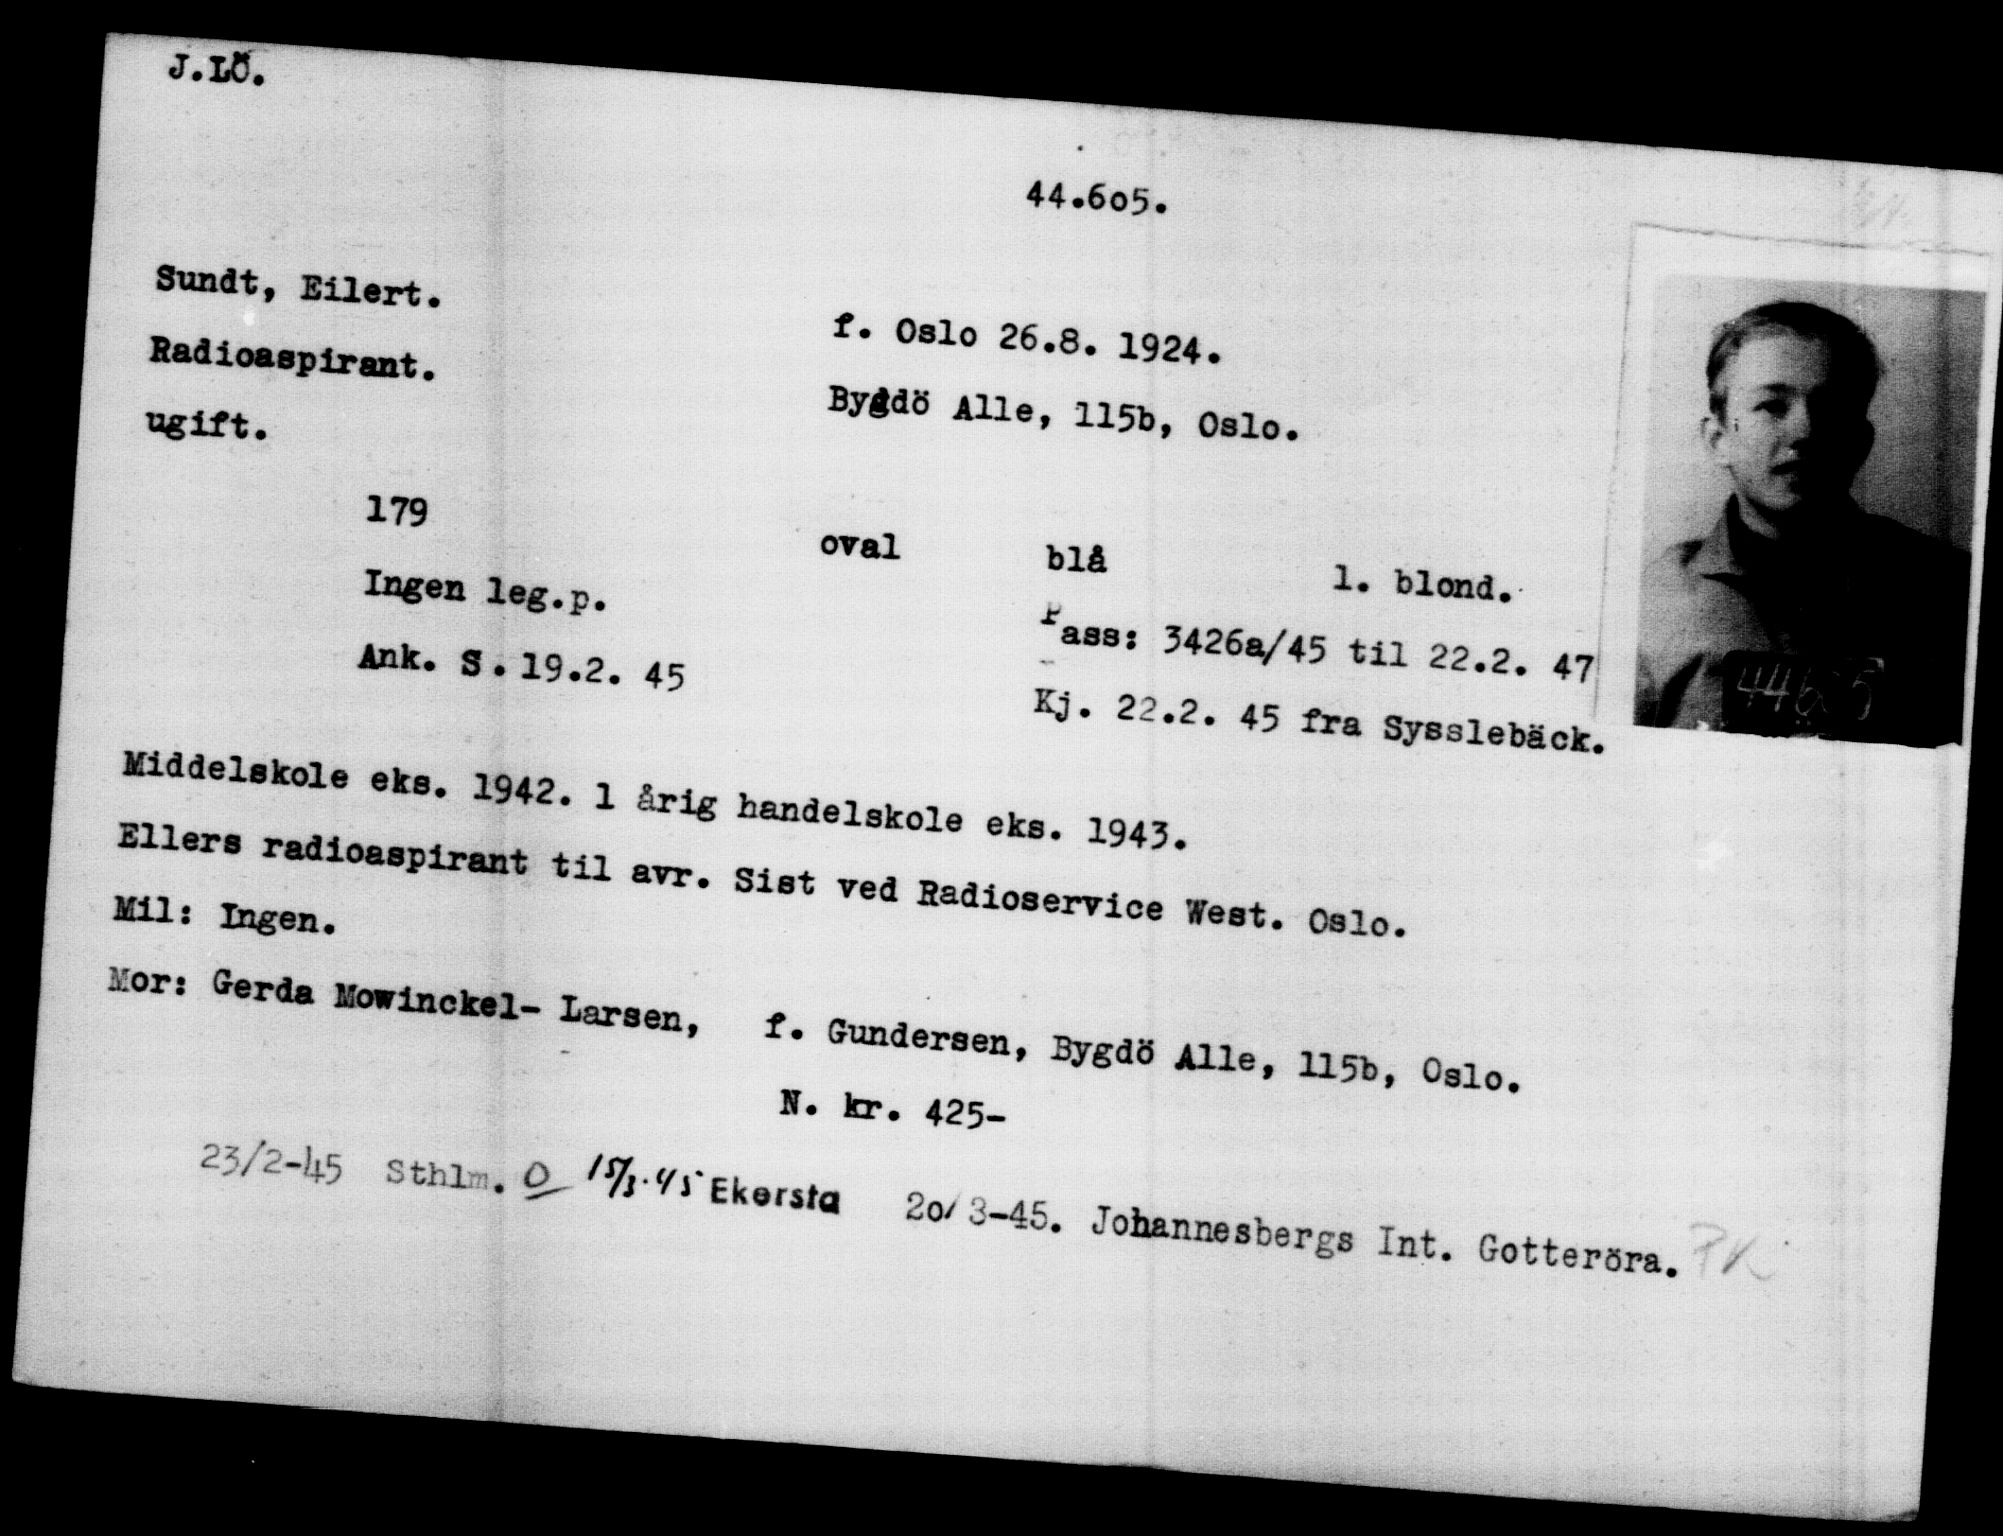 J.LÖ.
44.6o5.
Sundt, Eilert.
f. Oslo 26.8. 1924.
Radioaspirant.
Bygdö Alle, 115b, Oslo.
ugift.
179 oval blå l. blond.
Ingen leg.p.
Pass: 3426a/45 til 22.2. 47
Ank. S. 19.2. 45
Kj. 22.2. 45 fra Sysslebäck.
44605
Middelskole eks. 1942. 1 årig handelskole eks. 1943.
Ellers radioaspirant til avr. Sist ved Radioservice West. Oslo.
Mil: Ingen.
Mor: Gerda Mowinckel- Larsen, f. Gundersen, Bygdö Alle, 115b, Oslo.
N. kr. 425-
23/2-45 Sthlm. O 15/3.45 Ekersta 2o/3-45. Johannesbergs Int. Gotteröra. PK